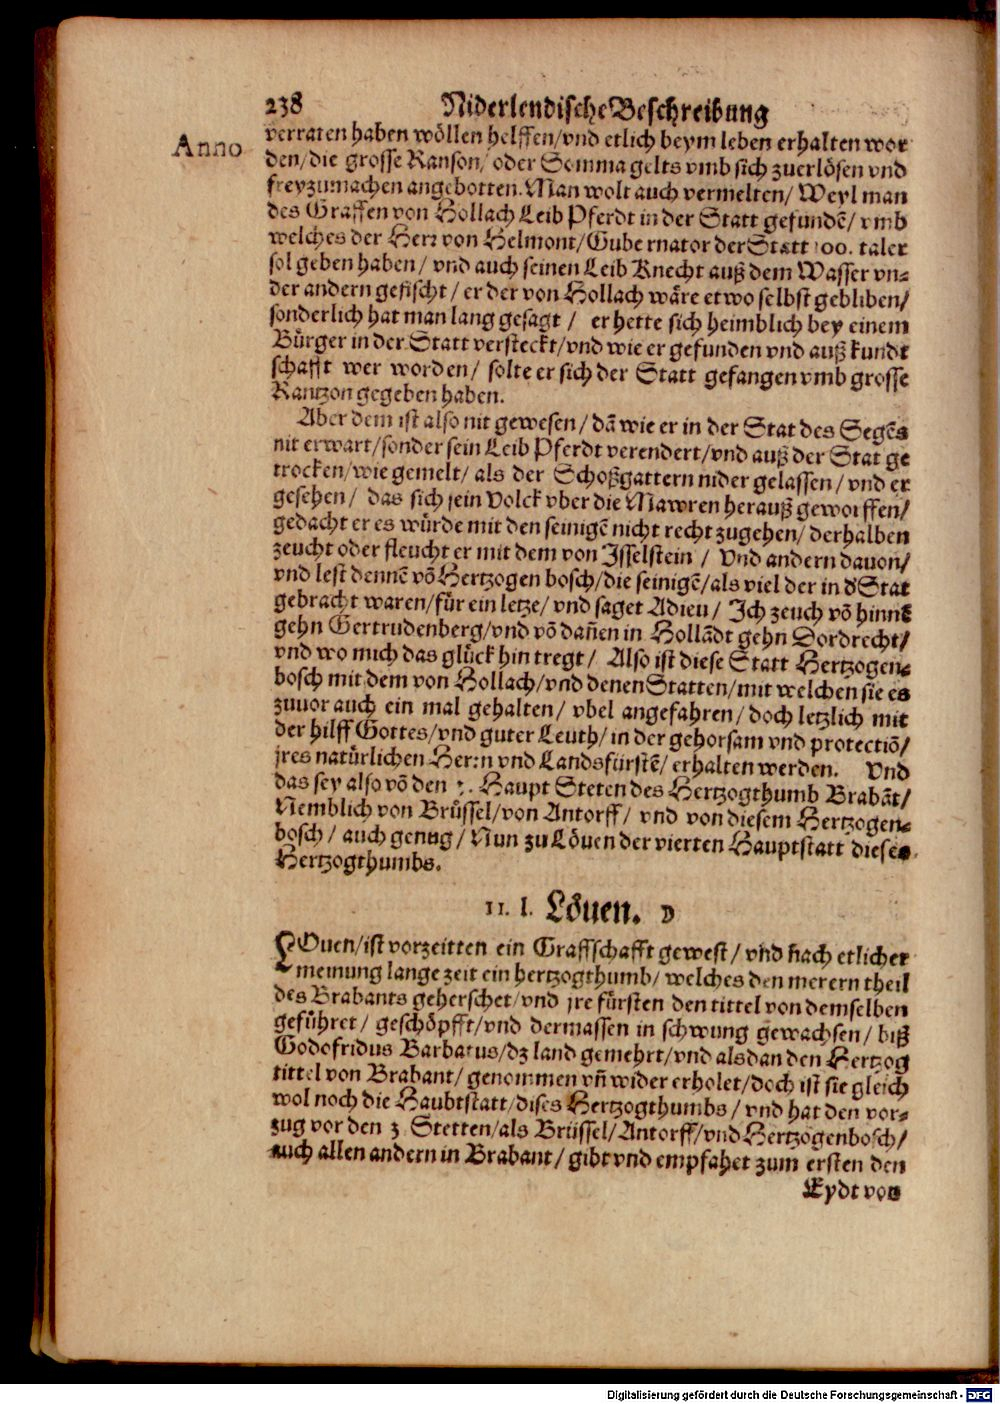 238 Niderlendische Beschreibung
Anno
verraten haben wöllen helffen/vnd etlich beym leben erhalten wor
den/die grosse Ranson/oder Somma gelts vmb sich zuerlösen vnd
freyzumachen angebotten. Man wolt auch vermelten/ Weyl man
des Graffen von Hollach Leib Pferdt in der Statt gefundē/ vmb
welches der Herr von Helmont/Gubernator der Statt 100. taler
sol geben haben/ vnd auch seinen Leib Knecht auß dem Wasser vn-
der andern gefischt/ er der von Hollach wäre etwo selbst gebliben/
sonderlich hat man lang gesagt/ er hette sich heimblich bey einem
Bürger in der Statt versteckt/vnd wie er gefunden vnd auß kundt
schafft wer worden/ solte er sich der Statt gefangen vmb grosse
Rantzon gegeben haben.
Aber dem ist also nit gewesen/ dā wie er in der Stat des Segēs
nit erwart/sonder sein Leib Pferdt verendert/vnd auß der Stat ge
trocken/wie gemelt/ als der Schoßgattern nider gelassen/ vnd er
gesehen/ das sich sein Volck vber die Mawren herauß geworffen/
gedacht er es würde mit den seinigē nicht recht zugehen/ derhalben
zeucht oder fleucht er mit dem von Isselstein/ Vnd andern davon/
vnd lest dennē vō Hertzogen bosch/die seinigē/als viel der in d Stat
gebracht waren/für ein letze/ vnd saget Adieu/ Ich zeuch vō hinnē
gehn Gertrudenberg/vnd vō dañen in Hollādt gehn Dordrecht/
vnd wo mich das glück hin tregt/ Also ist diese Statt Hertzogen-
bosch mit dem von Hollach/vnd denen Statten/mit welchen sie es
zuuor auch ein mal gehalten/ vbel angefahren/ doch letzlich mit
der hilff Gottes/vnd guter Leuth/ in der gehorsam vnd protectiō/
jres natürlichen Herrn vnd Landsfürstē/ erhalten werden. Vnd
das sey also vō den 3. Haupt Steten des Hertzogthumb Brabāt/
Nemblich von Brüssel/von Antorff/ vnd von diesem Hertzogen-
bosch/ auch genug/ Nun zu Löuen der vierten Hauptstatt dieses
Hertzogthumbs.
11. I. Löuen. D
LOuen/ist vorzeitten ein Graffschafft gewest/ vnd nach etlicher
meinung lange zeit ein hertzogthumb/ welches den merern theil
des Brabants geherschet/vnd jre fürsten den tittel von demselben
geführet/ geschöpfft/vnd dermassen in schwung gewachsen/ biß
Godofridus Barbatus/dz land gemehrt/vnd alsdan den Hertzog
tittel von Brabant/ genommen vñ wider erholet/doch ist sie gleich
wol noch die Haubtstatt/dises Hertzogthumbs/ vnd hat den vor-
zug vor den 3. Stetten/als Brüssel/Antorff/vnd Hertzogenbosch/
auch allen andern in Brabant/ gibt vnd empfahet zum ersten den
Eydt von
Digitalisierung gefördert durch die Deutsche Forschungsgemeinschaft - DFG